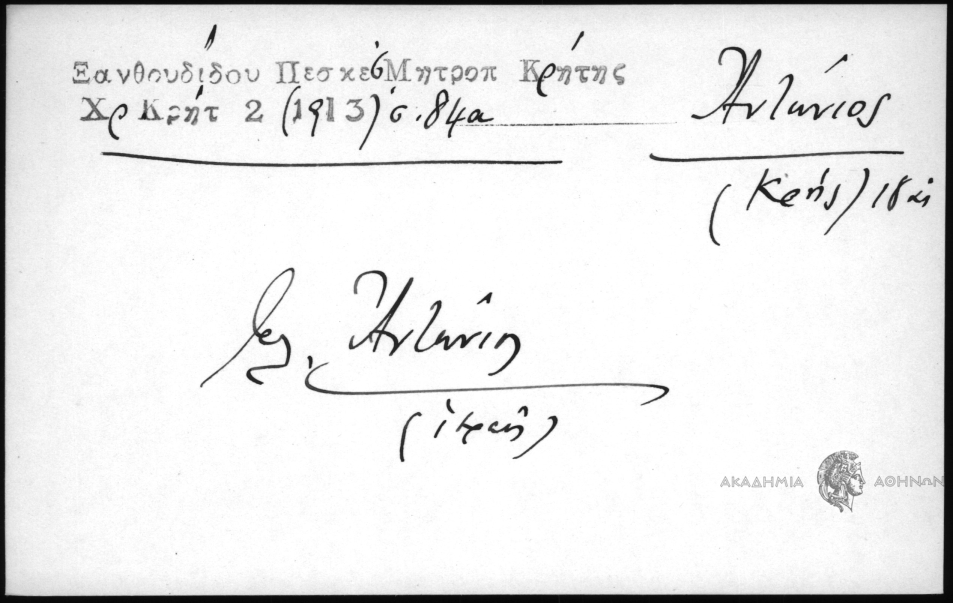 Ξανθουδίδου Πεσκέσ Μητροπ Κρήτης
Χρ Κρήτ 2 (1913) σ. 84α
Αντώνιος
(Κρής)
Αντώνιος
ΑΚΑΔΗΜΙΑ ΑΘΗΝΩΝ